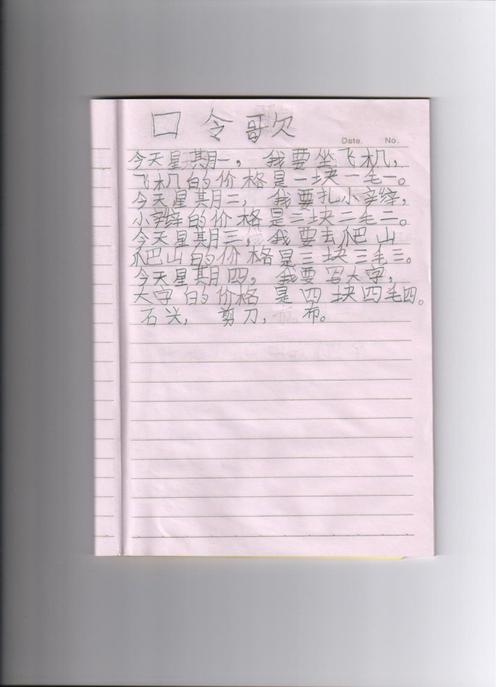 口令歌
Date. No.
今天星期一，我要坐飞机，
飞机的价格是一块一毛一。
今天星期二，我要扎小辫，
小辫的价格是二块二毛二。
今天星期三，我要去爬山
爬山的价格是三块三毛三。
今天星期四，我要写大字，
大字的价格是四块四毛四。
石头，剪刀，布。